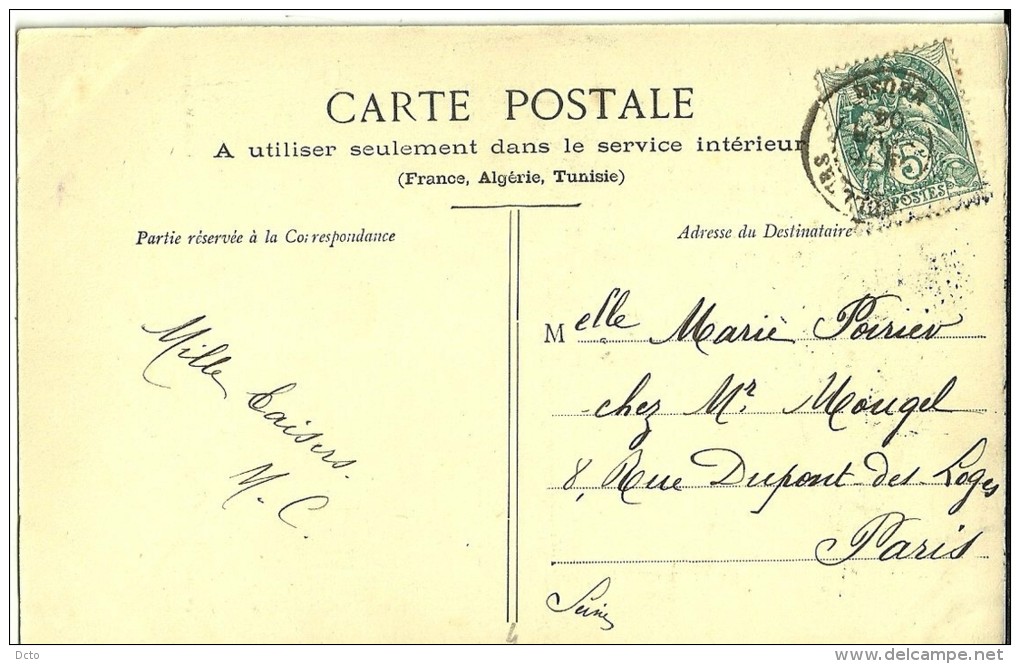 CARTE POSTALE
A utiliser seulement dans le service intérieur
(France, Algérie, Tunisie)
5
POSTES
Partie réservée à la Correspondance
Adresse du Destinataire
Mille baisers.
M. C.
Melle Marie Poirier
chez Mr Mougel
8, Rue Dupont-des-Loges
Paris
Seine
4
Dcto
delcampe.net